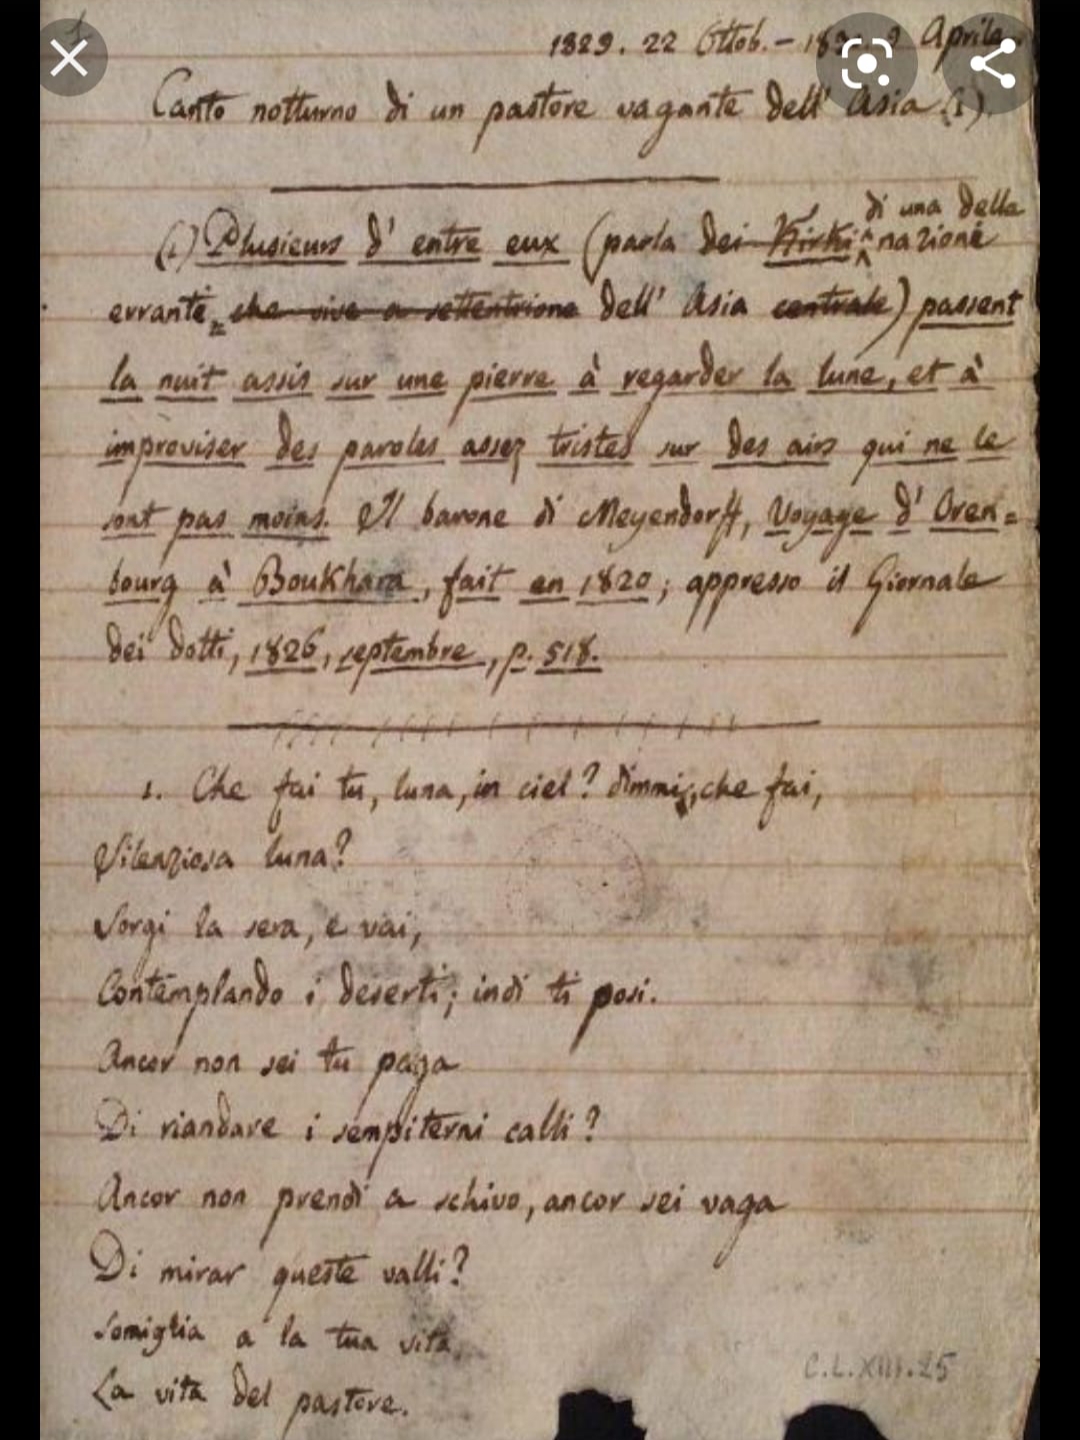 1829. 22 Ottob. – 183 9 Aprile.
Canto notturno di un pastore vagante dell' Asia.(1)
(1) Plusieurs d' entre eux (parla dei Kirki di una delle nazioni
erranti che vive a settentrione dell' Asia centrale) passent
la nuit assis sur une pierre à regarder la lune, et à
improviser des paroles assez tristes sur des airs qui ne le
sont pas moins. Il barone di Meyendorff, Voyage d' Oren=
bourg à Boukhara, fait en 1820; appresso il Giornale
dei dotti, 1826, septembre, p. 518.
1. Che fai tu, luna, in ciel? dimmi, che fai,
Silenziosa luna?
Sorgi la sera, e vai,
Contemplando i deserti; indi ti posi.
Ancor non sei tu paga
Di riandare i sempiterni calli?
Ancor non prendi a schivo, ancor sei vaga
Di mirar queste valli?
Somiglia a la tua vita
La vita del pastore.
C.L.XIII.25